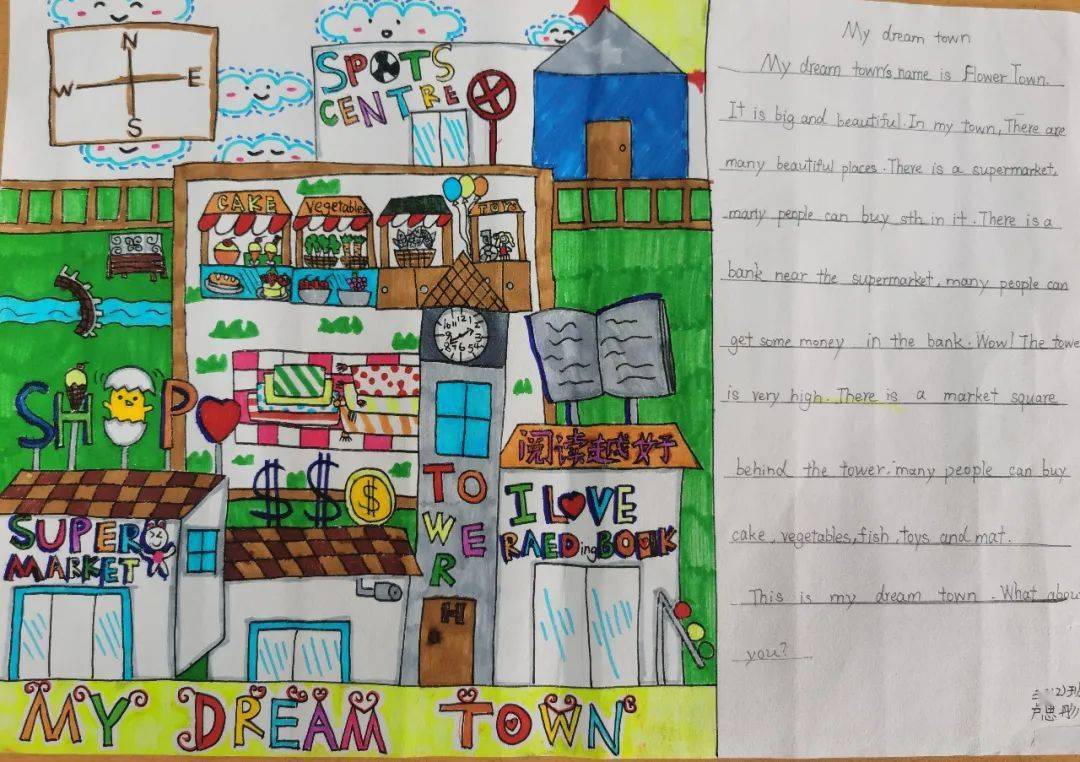 N
W E
S
SPOTS
CENTRE
CAKE
vegetables
TOYS
SHOP
$ $ $
SUPER
MARKET
TOWER
H
阅读越好
I LOVE
RAEDing BOOK
MY DREAM TOWN
My dream town
My dream town's name is Flower Town.
It is big and beautiful. In my town, There are
many beautiful places. There is a supermarket,
many people can buy sth in it. There is a
bank near the supermarket, many people can
get some money in the bank. Wow! The towe
is very high. There is a market square
behind the tower. many people can buy
cake, vegetables, fish, toys and mat.
This is my dream town. What abou
you?